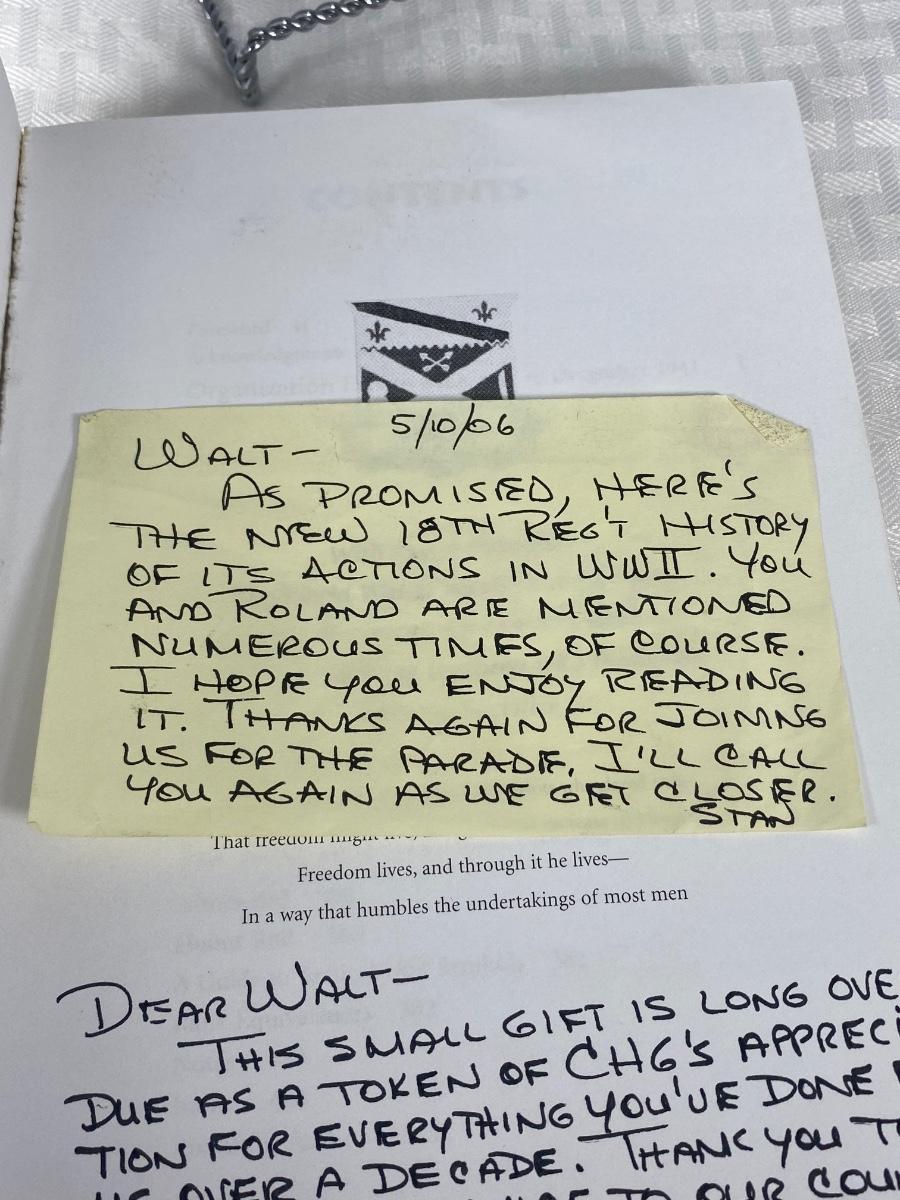 CONTENTS
5/10/06
WALT-
AS PROMISED, HERE'S
THE NEW 18TH REG'T HISTORY
OF ITS ACTIONS IN WWII. YOU
AND ROLAND ARE MENTIONED
NUMEROUS TIMES, OF COURSE.
I HOPE YOU ENJOY READING
IT. THANKS AGAIN FOR JOINING
US FOR THE PARADE. I'LL CALL
YOU AGAIN AS WE GET CLOSER.
STAN
That freedom might
Freedom lives, and through it he lives—
In a way that humbles the undertakings of most men
DEAR WALT-
THIS SMALL GIFT IS LONG OVE
DUE AS A TOKEN OF CHG'S APPRECI
TION FOR EVERYTHING YOU'VE DONE
THANK YOU T
OVER A DECADE.
TO OUR COU